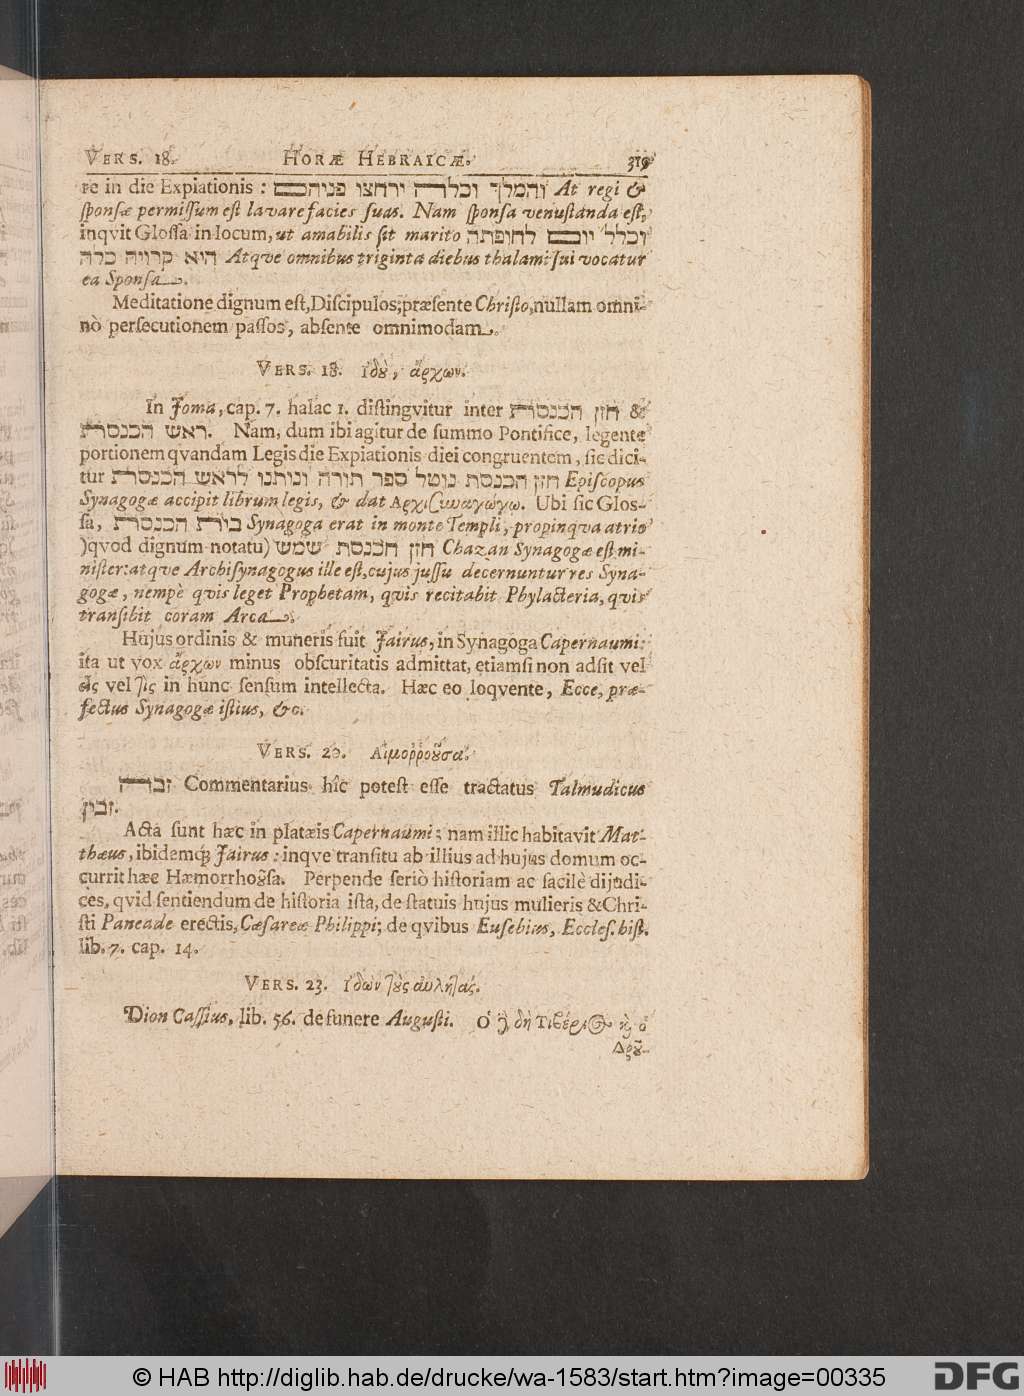 VERS. 18. HORÆ HEBRAICÆ. 319
re in die Expiationis: והמלך וכלה ירחצו פניהם At regi &
sponsæ permissum est lavare facies suas. Nam sponsa venustanda est,
inqvit Glossa in locum, ut amabilis sit marito וכלל יום לחופתה
היא קרויה כלה Atqve omnibus triginta diebus thalami sui vocatur
ea Sponsa.
Meditatione dignum est, Discipulos, præsente Christo, nullam omni-
nò persecutionem passos, absente omnimodam.
VERS. 18. Ἰδοὺ, ἄρχων.
In Joma, cap. 7. halac 1. distingvitur inter חזן הכנסת &
ראש הכנסת. Nam, dum ibi agitur de summo Pontifice, legente
portionem qvandam Legis die Expiationis diei congruentem, sic dici-
tur חזן הכנסת נוטל ספר תורה ונותנו לראש הכנסת Episcopus
Synagogæ accipit librum legis, & dat Αρχισυναγώγω. Ubi sic Glos-
sa, בית הכנסת Synagoga erat in monte Templi, propinqva atrio
)qvod dignum notatu) חזן הכנסת שמש Chazan Synagogæ est mi-
nister: atqve Archisynagogus ille est, cujus jussu decernuntur res Syna-
gogæ, nempè qvis leget Prophetam, qvis recitabit Phylacteria, qvis
transibit coram Arca.
Hujus ordinis & muneris fuit Jairus, in Synagoga Capernaumi:
ita ut vox ἄρχων minus obscuritatis admittat, etiamsi non adsit vel
εἷς vel τις in hunc sensum intellecta. Hæc eo loqvente, Ecce, præ-
fectus Synagogæ istius, &c.
VERS. 20. Αἱμοῤῥοοῦσα.
זבה Commentarius hîc potest esse tractatus Talmudicus
זבין.
Acta sunt hæc in platæis Capernaumi; nam illic habitavit Mat-
thæus, ibidemq; Jairus: inqve transitu ab illius ad hujus domum oc-
currit hæc Hæmorrhoȣsa. Perpende seriò historiam ac facilè dijudi-
ces, qvid sentiendum de historia ista, de statuis hujus mulieris & Chri-
sti Paneade erectis, Cæsareæ Philippi; de qvibus Eusebius, Eccles. hist.
lib. 7. cap. 14.
VERS. 23. Ἰδὼν τοὺς αὐλητάς.
Dion Cassius, lib. 56. de funere Augusti. Ὁ δὲ δὴ Τιβέριος καὶ ὁ
Δροῦ-
© HAB http://diglib.hab.de/drucke/wa-1583/start.htm?image=00335 DFG